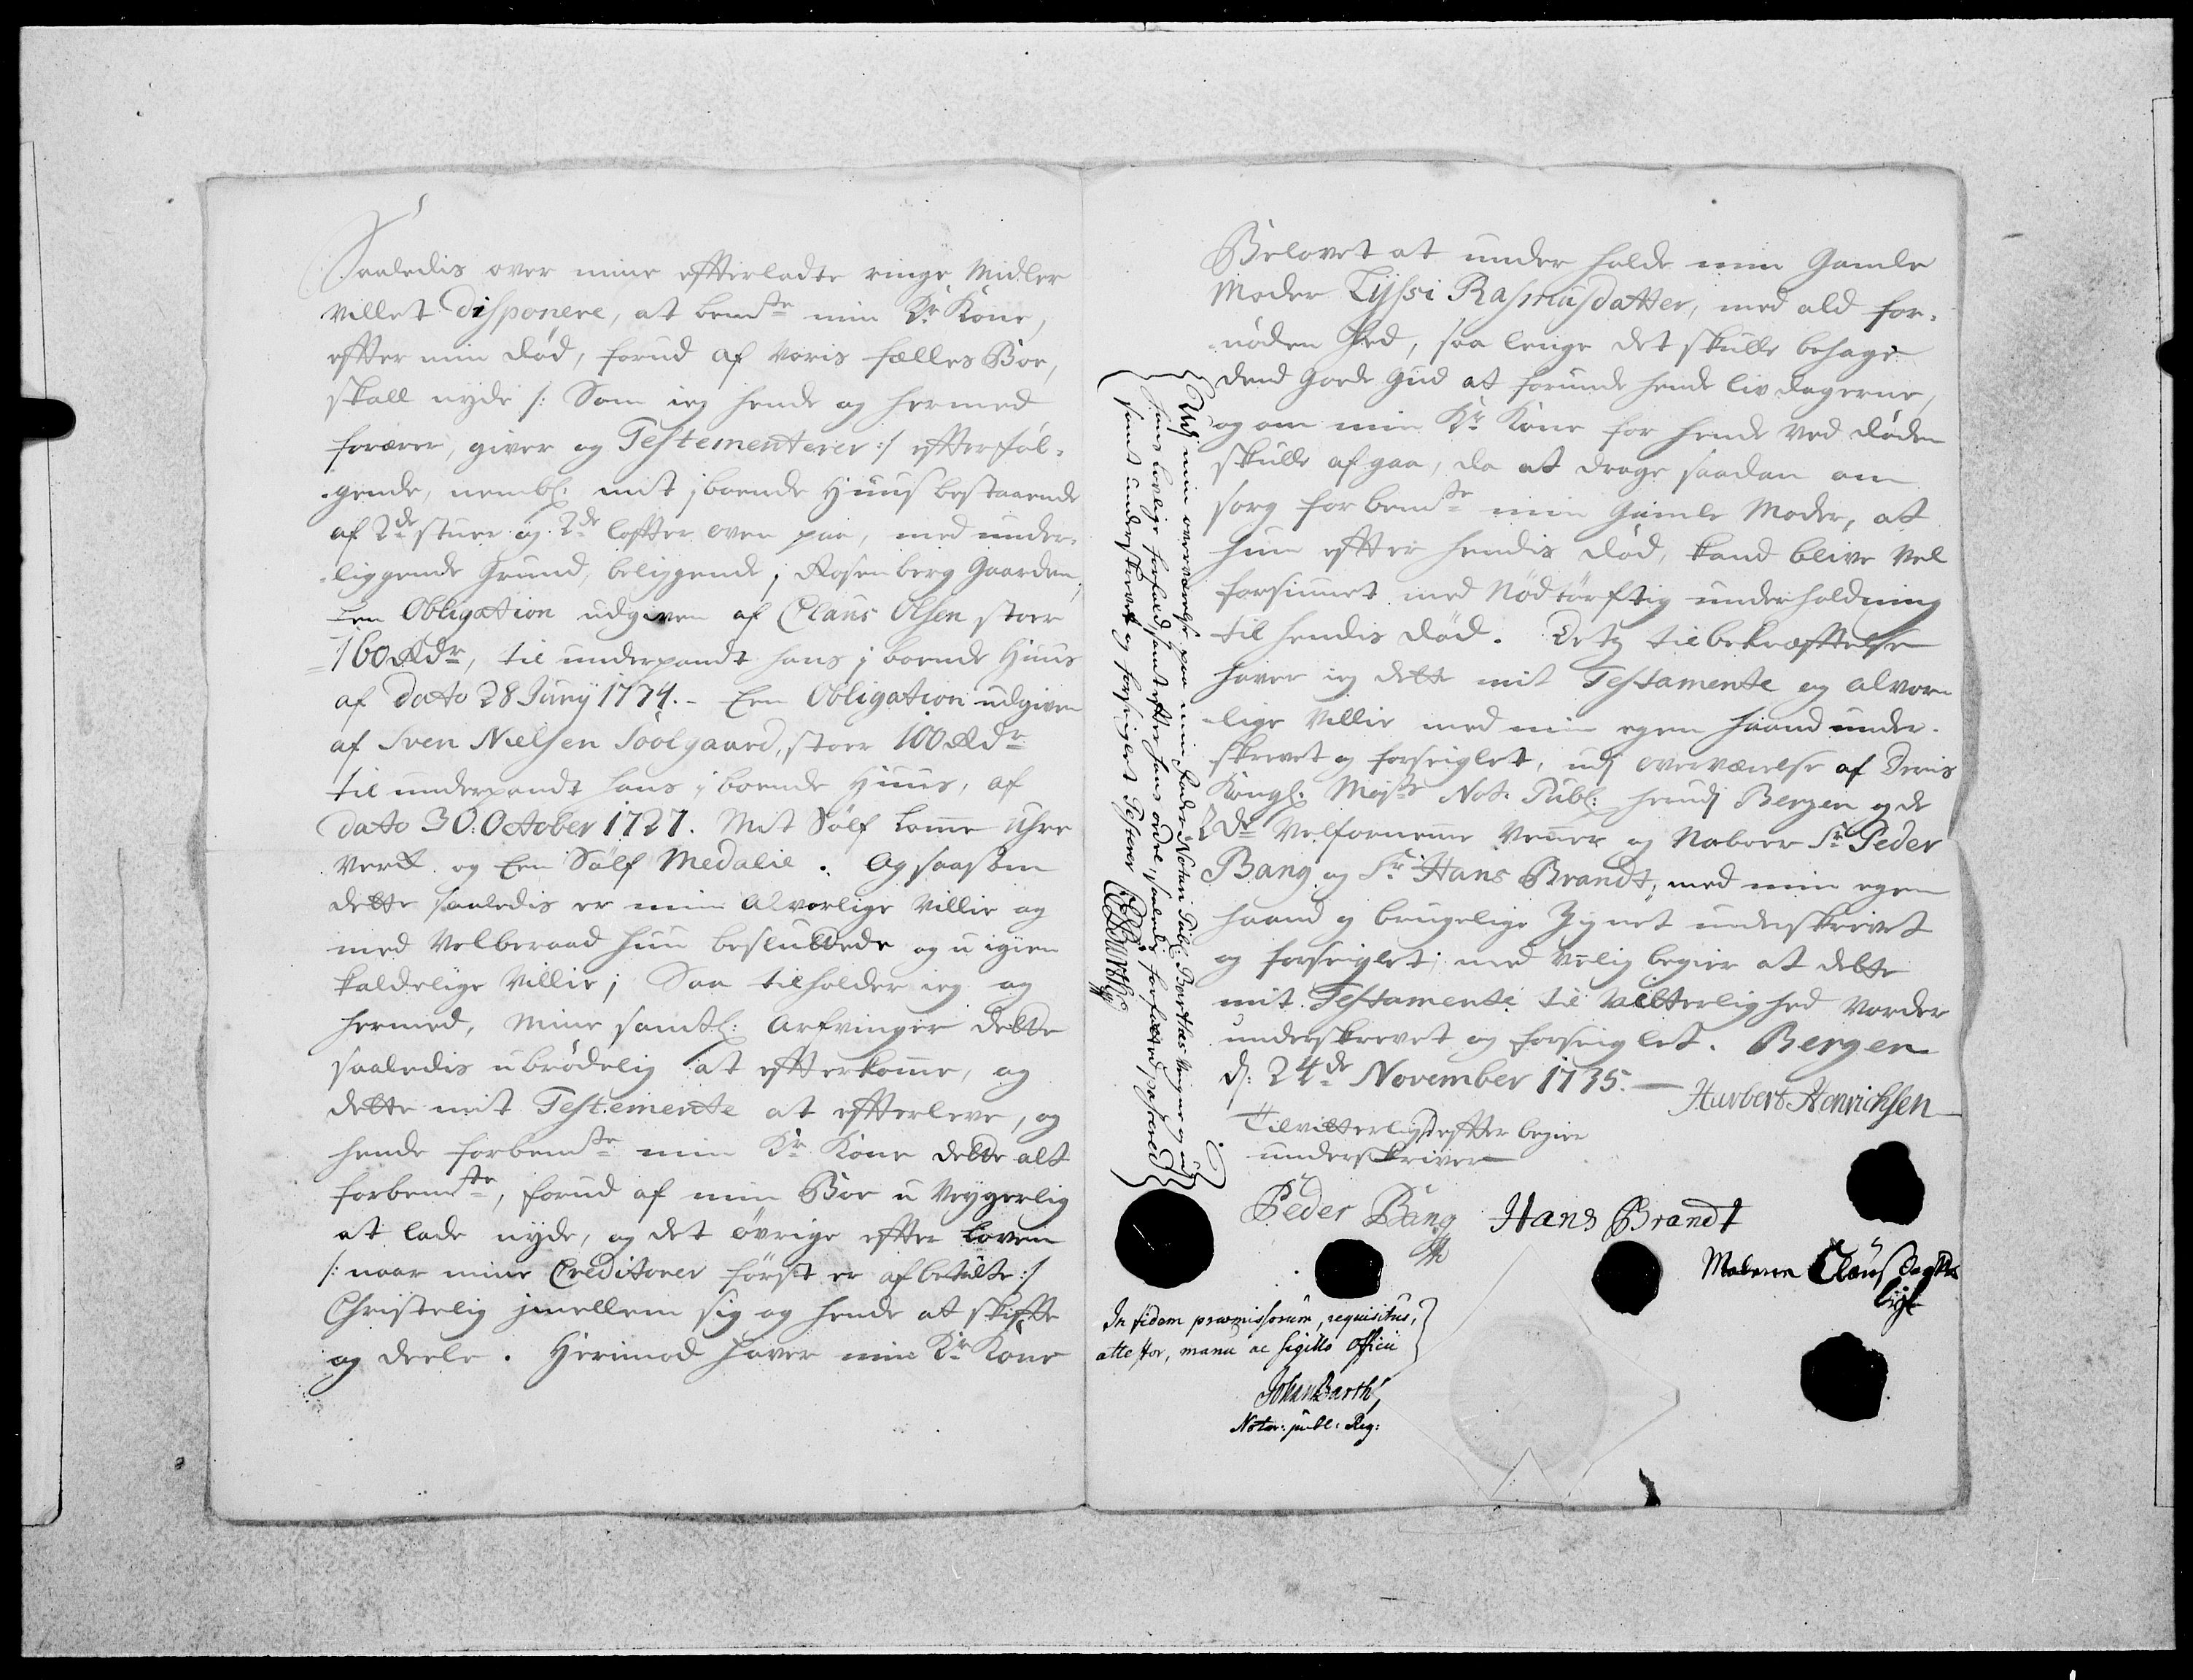 Saaledis over mine efterladte ringe Midler
villet Disponere, at bemte min Kr Kone,
efter min død, forud af voris felles Boe,
skall nyde /: Som ieg hende og hermed
forærer, giver og Testementerer :/ efterføl-
gende, nembl: mit iboende Huus bestaaende
af 2de stuer og 2de lofter oven paa, med under-
liggende Grund, beliggende i Rosenberg Gaarden,
Een Obligation udgiven af Claus Olsen stoer
160 Rdr, til underpandt hans iboende Huus
af dato 28 Junij 1734. - Een Obligation udgiven
af Sven Nielsen Soolgaard, stoer 100 Rdr
til underpandt hans iboende Huus, af
dato 30: October 1727. Mit Sølf Lomme Uhr
verk og Een Sølf Medalie. Og saasom
dette saaledis er min Alvorlige Villie og
med Velberaad Huu besluttede og u igien
kaldelige Villie; Saa tilholder ieg og
hermed, mine samtl: Arfvinger dette
saaledis ubrødelig at efterkomme, og
dette mit Testemente at efterleve, og
hende forbemte min Kr Kone dette alt
forbemte, forud af min Boe u Veygerlig
at lade nyde, og det øvrige efter Loven
/: naar mine Creditorer først er afbetalte :/
Christelig imellem sig og hende at skifte
og deele. Herimod haver min Kr Kone
Belovet at under holde min Gamle
Moder Lyssi Rasmusdatter, med ald for-
nøden hed, saa lenge det skulle behage
dend Gode Gud at forunde hende liv dagerne,
og om min Kr Kone for hende ved døden
skulle afgaa, da at drage saadan om
sorg for bemte min Gamle Moder, at
hun efter hendis død, kand blive vel
forsiunet med Nødtørftig underholdning
til hendis død. Dets til bekræftelse
haver ieg dette mit Testamente og alvor
lige Villie med min egen haand under-
skrevet og forseiglet, udj overværelse af Deris
Kongl: Maysts Not: Publ: herudj Bergen og de
2de Velfornemme Venner og Naboer Sr Peder
Bang og Sr Hans Brandt, med min egen
haand og brugelige Zignet underskrivet
og forseiglet; med Venlig begier at dette
mit Testamente til Vitterlighed vorder
underskrevet og forseiglet. Bergen
d: 24de November 1735. Harbert Henrichsen
Til vitterlighed efter begier
underskriver
Peder Bang Hans Brandt
Claus
Udj min overværelse paa min Fader Notari Publ: Barthes Vegne og udj
hans lovlige forfald, samt efter hans ordre, saaledis forfatted, passered
samt underskrevet og forseiglet Testerer
In fidem præmissorum, requisitus,
attestor, manu ac sigillo Officii
Johan Barth,
Notar: publ: Reg: